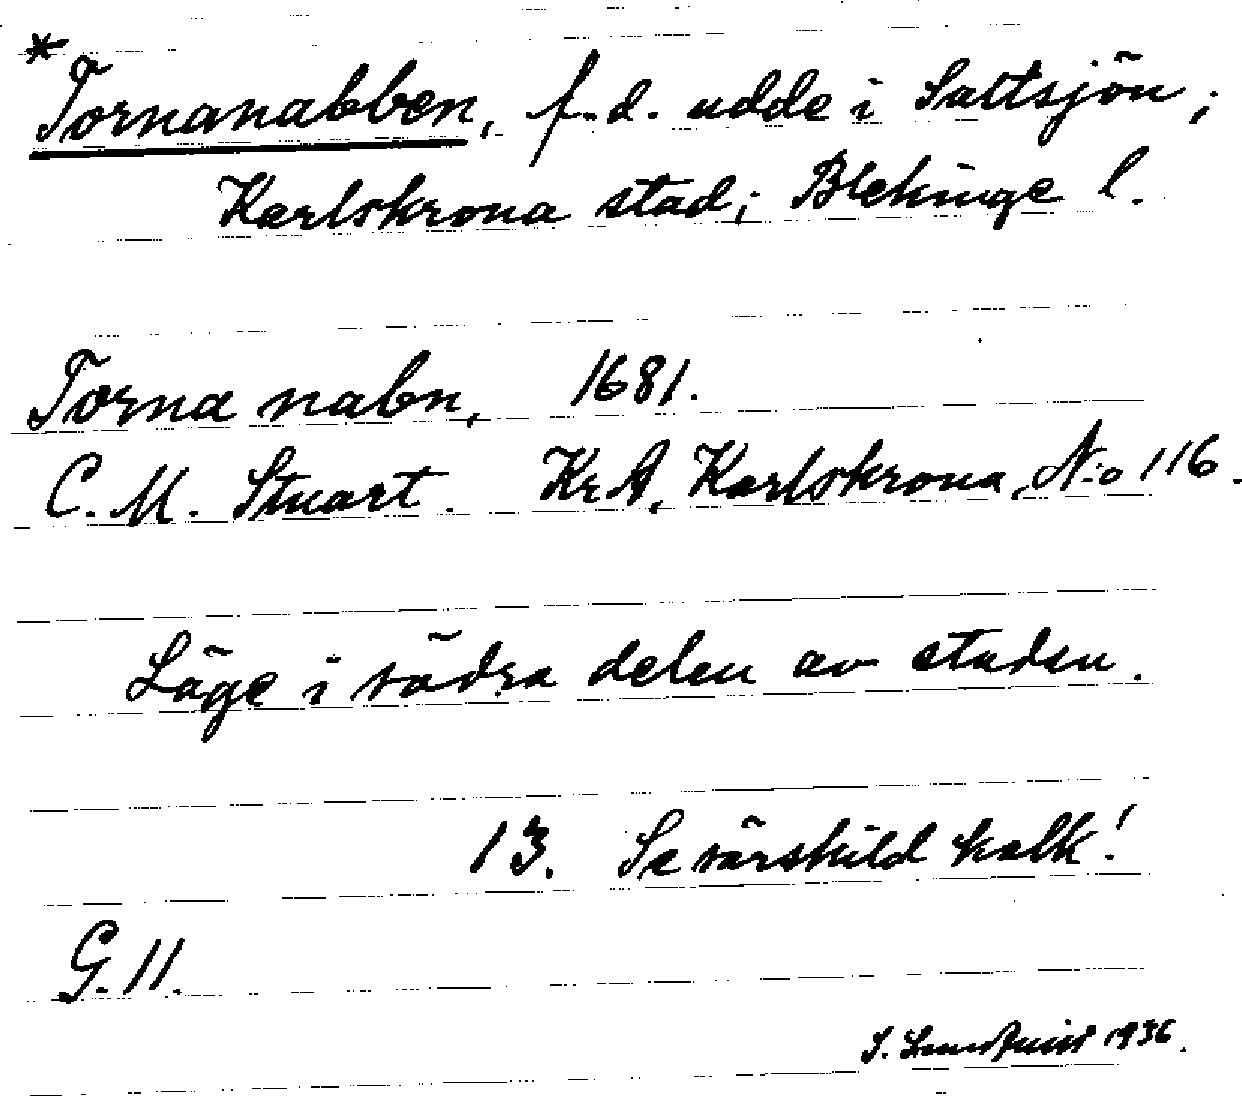 *Tornanabben, f.d. udde i Saltsjön;
Karlskrona stad; Blekinge l.
Torna nabn, 1681.
C. M. Stuart. KrA, Karlskrona, N:o 116.
Läge i södra delen av staden.
13. Se särskild kalk!
G. 11.
S. Lundquist 1936.